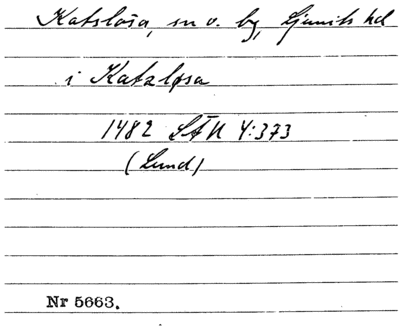 Katslösa, sn o. by, Ljunits hd
i Katzløsa
1482 LÄU 4:373
(Lund)
Nr 5663.